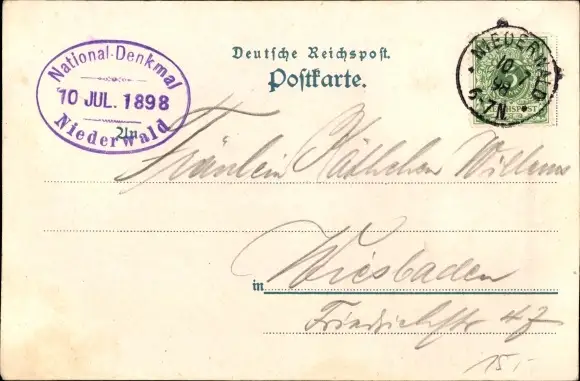 National-Denkmal
10 JUL. 1898
Niederwald
Deutsche Reichspost.
Postkarte.
NIEDERWALD
10 7
98
6-7N
5
An
Fräulein Käthchen Willems
in Wiesbaden
Friedrichstr 47
15,-